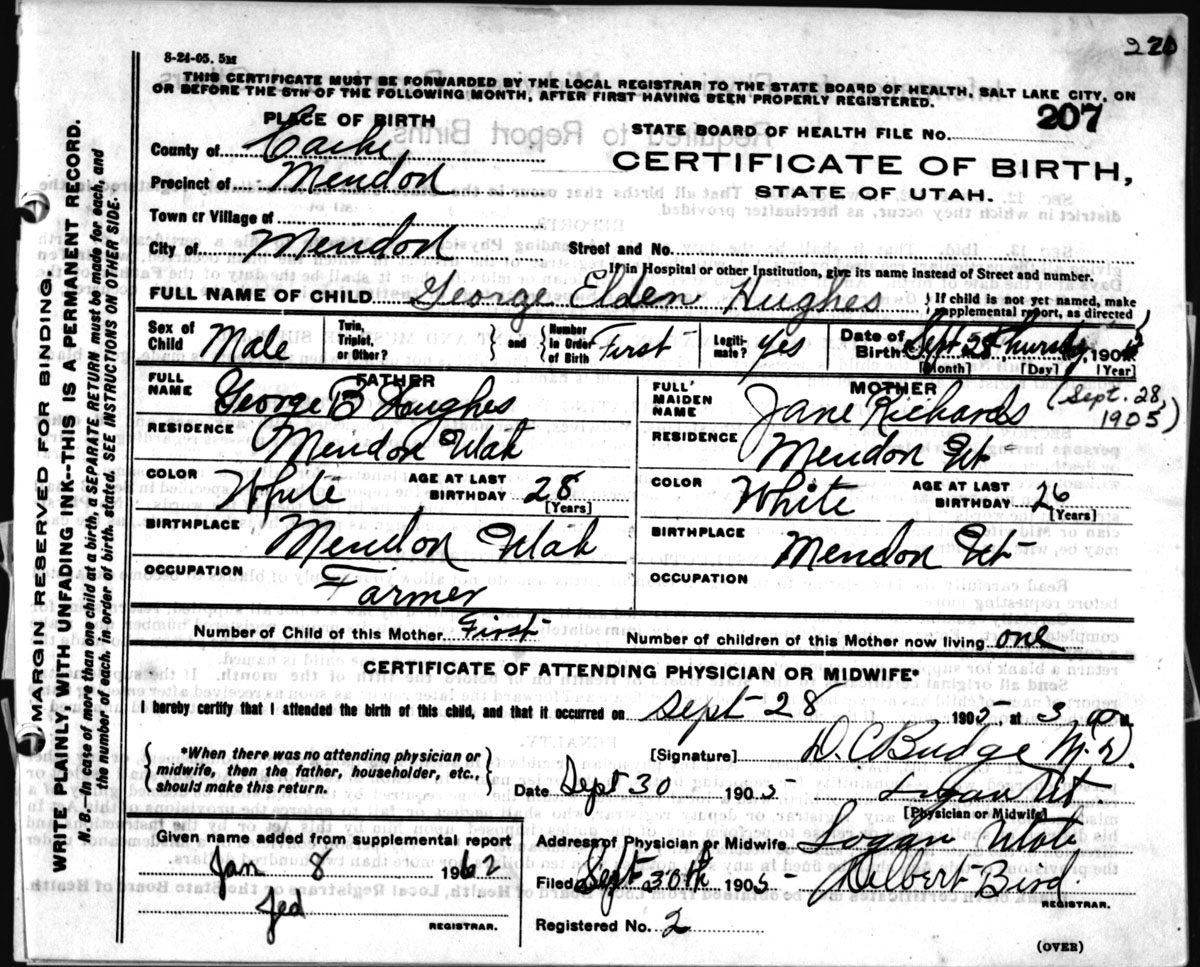 220
8-24-05. 5M
THIS CERTIFICATE MUST BE FORWARDED BY THE LOCAL REGISTRAR TO THE STATE BOARD OF HEALTH, SALT LAKE CITY, ON
OR BEFORE THE 5TH OF THE FOLLOWING MONTH, AFTER FIRST HAVING BEEN PROPERLY REGISTERED.
207
PLACE OF BIRTH
STATE BOARD OF HEALTH FILE No.
County of Cache
CERTIFICATE OF BIRTH,
Precinct of Mendon
STATE OF UTAH.
Town or Village of
City of Mendon Street and No.
If in Hospital or other Institution, give its name instead of Street and number.
FULL NAME OF CHILD George Elden Hughes { If child is not yet named, make
supplemental report, as directed }
Sex of Child Male Twin, Triplet, or Other? and Number in Order of Birth First Legiti-mate? Yes Date of Birth Sept 28 Thursday, 190
[Month] [Day] [Year]
FATHER
FULL NAME George B Hughes
RESIDENCE Mendon Utah
COLOR White AGE AT LAST BIRTHDAY 28
[Years]
BIRTHPLACE Mendon Utah
OCCUPATION Farmer
MOTHER
FULL MAIDEN NAME Jane Richards (Sept. 28, 1905)
RESIDENCE Mendon Ut
COLOR White AGE AT LAST BIRTHDAY 26
[Years]
BIRTHPLACE Mendon Ut
OCCUPATION
Number of Child of this Mother First Number of children of this Mother now living one
CERTIFICATE OF ATTENDING PHYSICIAN OR MIDWIFE*
I hereby certify that I attended the birth of this child, and that it occurred on Sept 28 1905 at 3
{ *When there was no attending physician or
midwife, then the father, householder, etc.,
should make this return. }
[Signature] D. C Budge M. D.
Date Sept 30 1905 Logan Ut.
[Physician or Midwife]
Given name added from supplemental report
Address of Physician or Midwife Logan Utah
Jan 8 1962
Filed Sept 30th 1905 Delbert Bird.
Jed
REGISTRAR.
REGISTRAR.
Registered No. 2
(OVER)
MARGIN RESERVED FOR BINDING.
WRITE PLAINLY, WITH UNFADING INK--THIS IS A PERMANENT RECORD.
N. B.--In case of more than one child at a birth, a SEPARATE RETURN must be made for each, and
the number of each, in order of birth, stated. SEE INSTRUCTIONS ON OTHER SIDE.